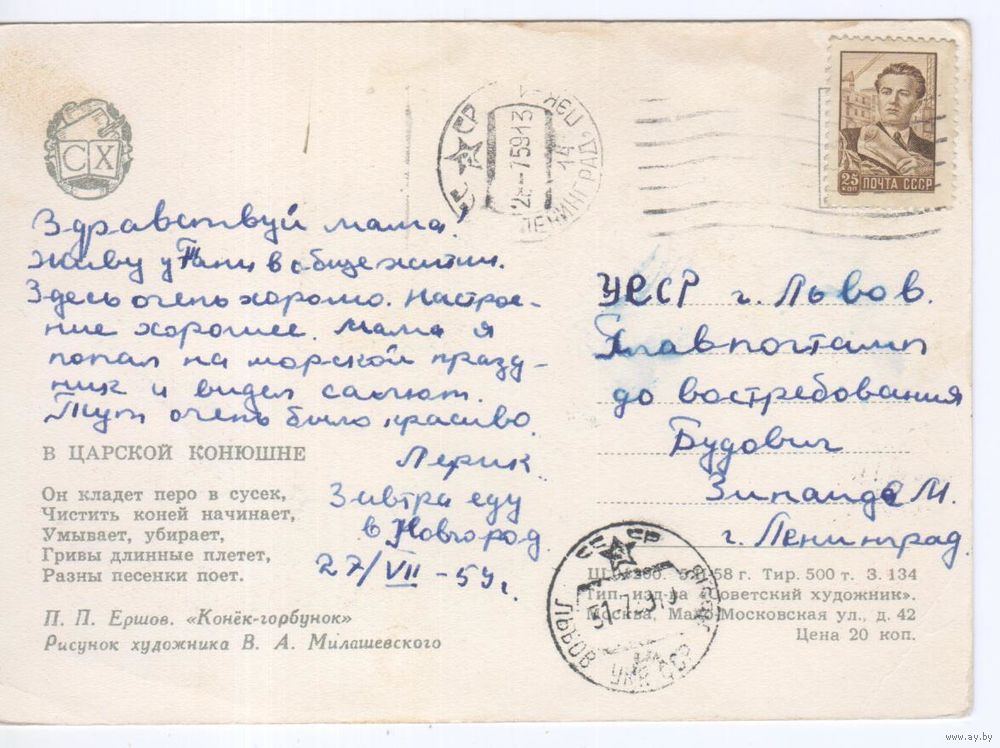 СХ
СССР
ЛЕНИНГРАД
25 коп
ПОЧТА СССР
Здравствуй мама!
Живу у Тани в общежитии.
Здесь очень хорошо. Настрое-
ние хорошее. Мама я
попал на морской празд-
ник и видел салют.
Тут очень было красиво.
Лерик.
Завтра еду
в Новгород.
27/VII-59г.
УССР г. Львов.
Главпочтамп
до востребования
Будович
Зинаида М.
г. Ленинград.
В ЦАРСКОЙ КОНЮШНЕ
Он кладет перо в сусек,
Чистить коней начинает,
Умывает, убирает,
Гривы длинные плетет,
Разны песенки поет.
П. П. Ершов. «Конёк-горбунок»
Рисунок художника В. А. Милашевского
58 г. Тир. 500 т. З. 134
Тип. изд-ва «Советский художник».
Москва, Мало-Московская ул., д. 42
Цена 20 коп.
СССР
ЛЬВОВ УКР ССР
www.ay.by